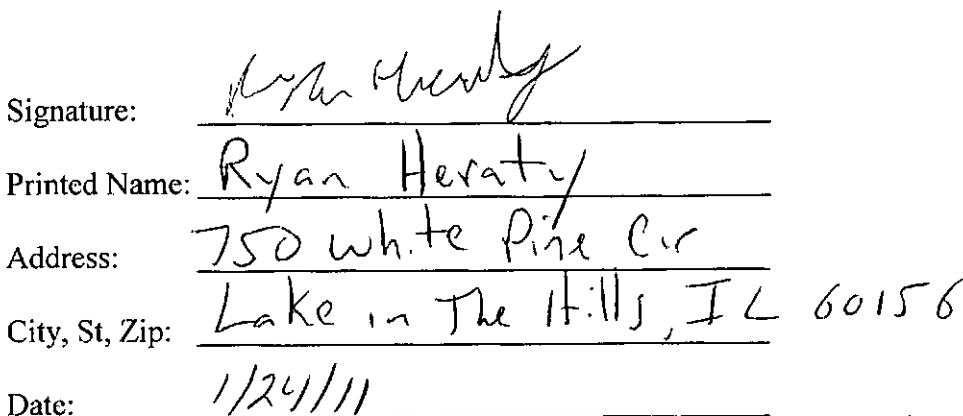 Signature: Ryan Heraty
Printed Name: Ryan Heraty
Address: 750 White Pine Cir
City, St, Zip: Lake in The Hills, IL 60156
Date: 1/24/11